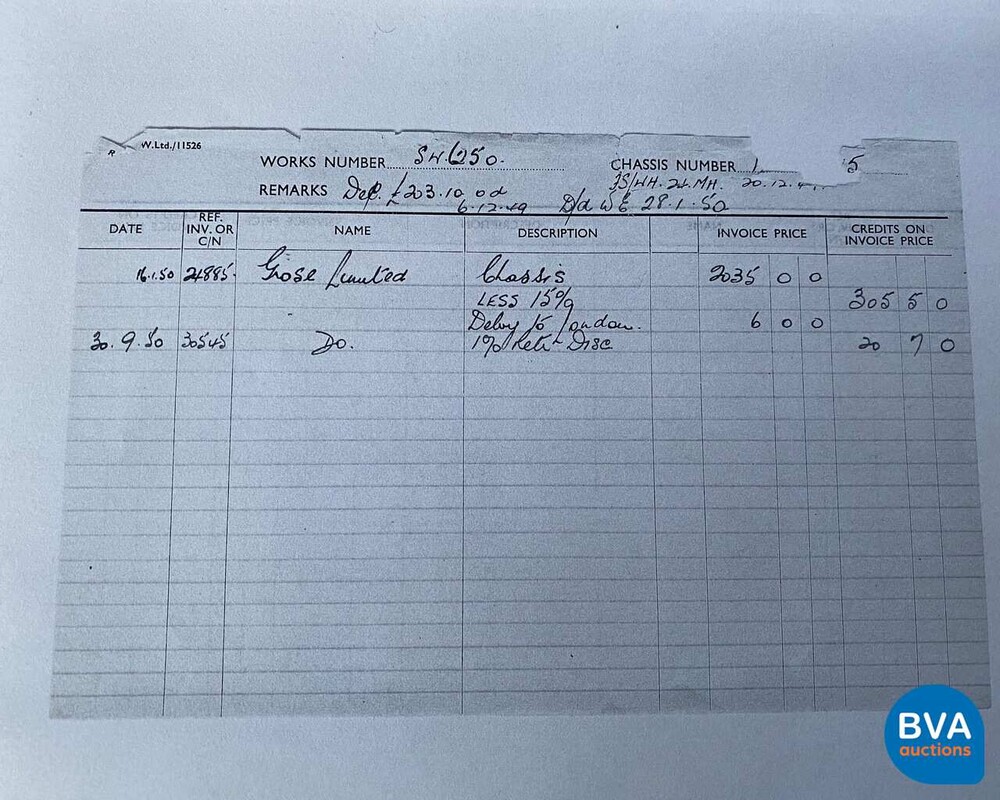 R W.Ltd./11526
WORKS NUMBER SW.6250. CHASSIS NUMBER 5
REMARKS Dep. £203.10.0d 20.12.4
6.12.49 D/d W E 28.1.50
DATE REF. INV. OR C/N NAME DESCRIPTION INVOICE PRICE CREDITS ON INVOICE PRICE
16.1.50 24885. Grose Limited Chassis 2035 0 0
LESS 15% 305 5 0
Delvy to London. 6 0 0
30.9.50 30545 Do. 1% Retr Disc 20 7 0
BVA
auctions